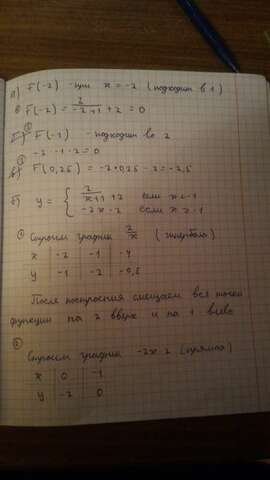 а) F(-2) - при x = -2 (подходит в 1)
F(-2) = 2/(-2+1) + 2 = 0
F(-1) - подходит во 2
-2 · -1 - 2 = 0
F(0,25) = -2·0,25 - 2 = -2,5
б) y = { 2/(x+1) + 2 если x < -1
-2x - 2 если x ≥ -1
① Строим график 2/x (гипербола)
x | -2 | -1 | -4
y | -1 | -2 | -0,5
После построения смещаем все точки
функции на 2 вверх и на 1 влево
② Строим график -2x-2 (прямая)
x | 0 | -1
y | -2 | 0